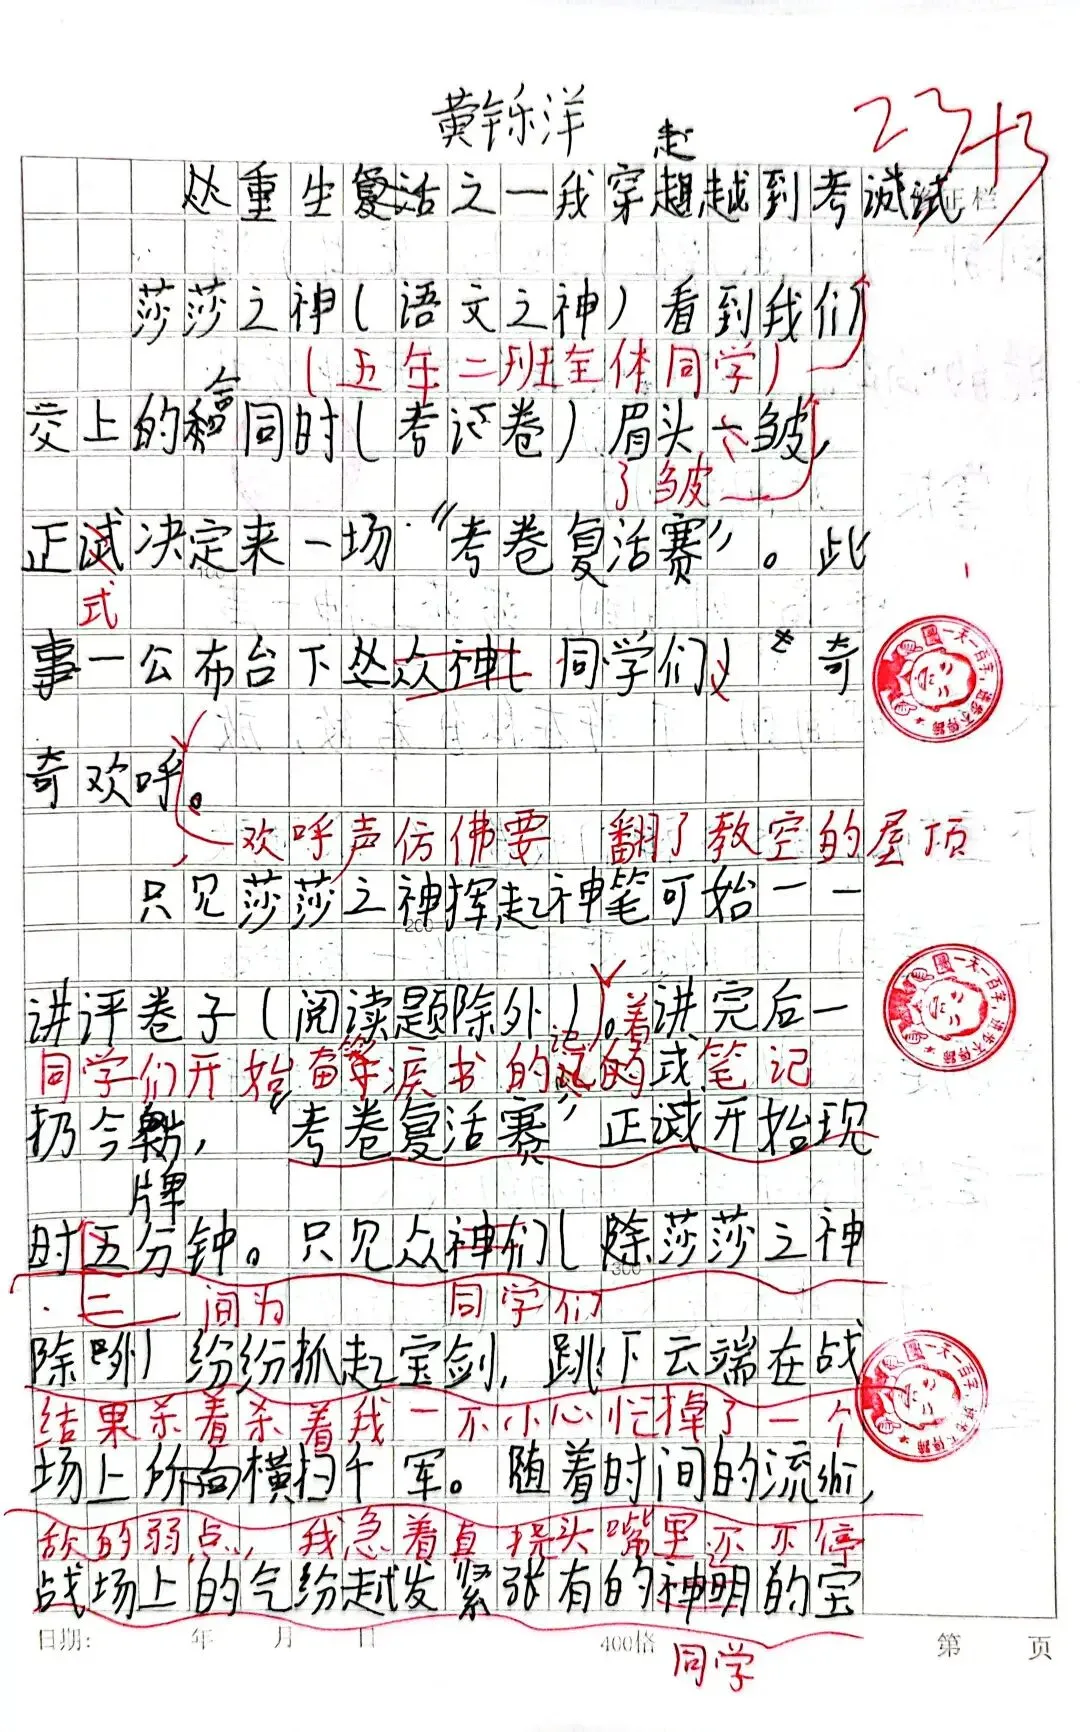 黄铄洋
23+3
赴
重生复活之一我穿越到考试
正栏
莎莎之神(语文之神)看到我们
(五年二班全体同学)
合
交上的同时(考试卷)眉头一皱,
了皱
正试决定来一场“考卷复活赛”。此
式
事一公布台下众神(同学们)奇
奇欢呼。
欢呼声仿佛要 翻了教空的屋顶
只见莎莎之神挥起神笔可始一一
200
讲评卷子(阅读题除外)。讲完后一
着
同学们开始奋笔疾书的记的或笔记
扔令,“考卷复活赛”正试开始现
牌
时五分钟。只见众神们(除莎莎之神
300
二 间为 同学们
除外)纷纷抓起宝剑,跳下云端在战
结果杀着杀着我一不小心忙掉了一个
场上所向横扫千军。随着时间的流逝,
敌的弱点,我急着直挠头嘴里还不停
战场上的气纷越发紧张有的神明的宝
日期: 年 月 日 400格 第 页
同学
一天一百字,进步不停蹄
一天一百字,进步不停蹄
一天一百字,进步不停蹄